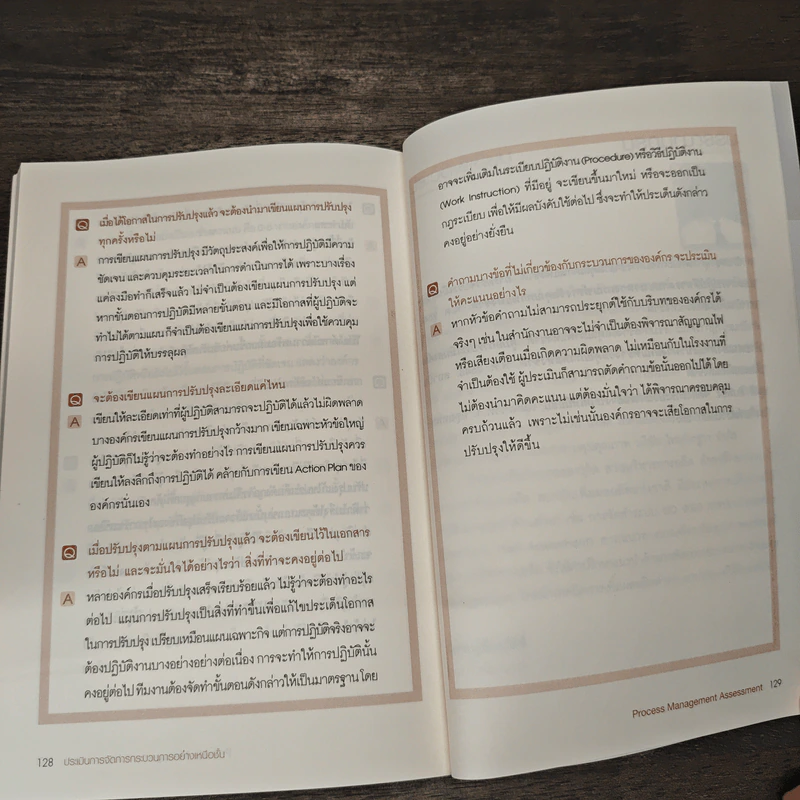 Q เมื่อได้โอกาสในการปรับปรุงแล้ว จะต้องนำมาเขียนแผนการปรับปรุง
ทุกครั้งหรือไม่
A การเขียนแผนการปรับปรุง มีวัตถุประสงค์เพื่อให้การปฏิบัติมีความ
ชัดเจน และควบคุมระยะเวลาในการดำเนินการได้ เพราะบางเรื่อง
แค่ลงมือทำก็เสร็จแล้ว ไม่จำเป็นต้องเขียนแผนการปรับปรุง แต่
หากขั้นตอนการปฏิบัติมีหลายขั้นตอน และมีโอกาสที่ผู้ปฏิบัติจะ
ทำไม่ได้ตามแผน ก็จำเป็นต้องเขียนแผนการปรับปรุงเพื่อใช้ควบคุม
การปฏิบัติให้บรรลุผล
Q จะต้องเขียนแผนการปรับปรุงละเอียดแค่ไหน
A เขียนให้ละเอียดเท่าที่ผู้ปฏิบัติสามารถจะปฏิบัติได้แล้วไม่ผิดพลาด
บางองค์กรเขียนแผนการปรับปรุงกว้างมาก เขียนเฉพาะหัวข้อใหญ่
ผู้ปฏิบัติก็ไม่รู้ว่าจะต้องทำอย่างไร การเขียนแผนการปรับปรุงควร
เขียนให้ลงลึกถึงการปฏิบัติได้ คล้ายกับการเขียน Action Plan ของ
องค์กรนั่นเอง
Q เมื่อปรับปรุงตามแผนการปรับปรุงแล้ว จะต้องเขียนไว้ในเอกสาร
หรือไม่ และจะมั่นใจได้อย่างไรว่า สิ่งที่ทำจะคงอยู่ต่อไป
A หลายองค์กรเมื่อปรับปรุงเสร็จเรียบร้อยแล้ว ไม่รู้ว่าจะต้องทำอะไร
ต่อไป แผนการปรับปรุงเป็นสิ่งที่ทำขึ้นเพื่อแก้ไขประเด็นโอกาส
ในการปรับปรุง เปรียบเหมือนแผนเฉพาะกิจ แต่การปฏิบัติจริงอาจจะ
ต้องปฏิบัติงานบางอย่างอย่างต่อเนื่อง การจะทำให้การปฏิบัตินั้น
คงอยู่ต่อไป ทีมงานต้องจัดทำขั้นตอนดังกล่าวให้เป็นมาตรฐาน โดย
128 ประเมินการจัดการกระบวนการอย่างเหนือชั้น
อาจจะเพิ่มเติมในระเบียบปฏิบัติงาน (Procedure) หรือวิธีปฏิบัติงาน
(Work Instruction) ที่มีอยู่ จะเขียนขึ้นมาใหม่ หรือจะออกเป็น
กฎระเบียบ เพื่อให้มีผลบังคับใช้ต่อไป ซึ่งจะทำให้ประเด็นดังกล่าว
คงอยู่อย่างยั่งยืน
Q คำถามบางข้อที่ไม่เกี่ยวข้องกับกระบวนการขององค์กร จะประเมิน
ให้คะแนนอย่างไร
A หากหัวข้อคำถามไม่สามารถประยุกต์ใช้กับบริบทขององค์กรได้
จริงๆ เช่น ในสำนักงานอาจจะไม่จำเป็นต้องพิจารณาสัญญาณไฟ
หรือเสียงเตือนเมื่อเกิดความผิดพลาด ไม่เหมือนกับในโรงงานที่
จำเป็นต้องใช้ ผู้ประเมินก็สามารถตัดคำถามข้อนั้นออกไปได้ โดย
ไม่ต้องนำมาคิดคะแนน แต่ต้องมั่นใจว่า ได้พิจารณาครอบคลุม
ครบถ้วนแล้ว เพราะไม่เช่นนั้นองค์กรอาจจะเสียโอกาสในการ
ปรับปรุงให้ดีขึ้น
Process Management Assessment 129